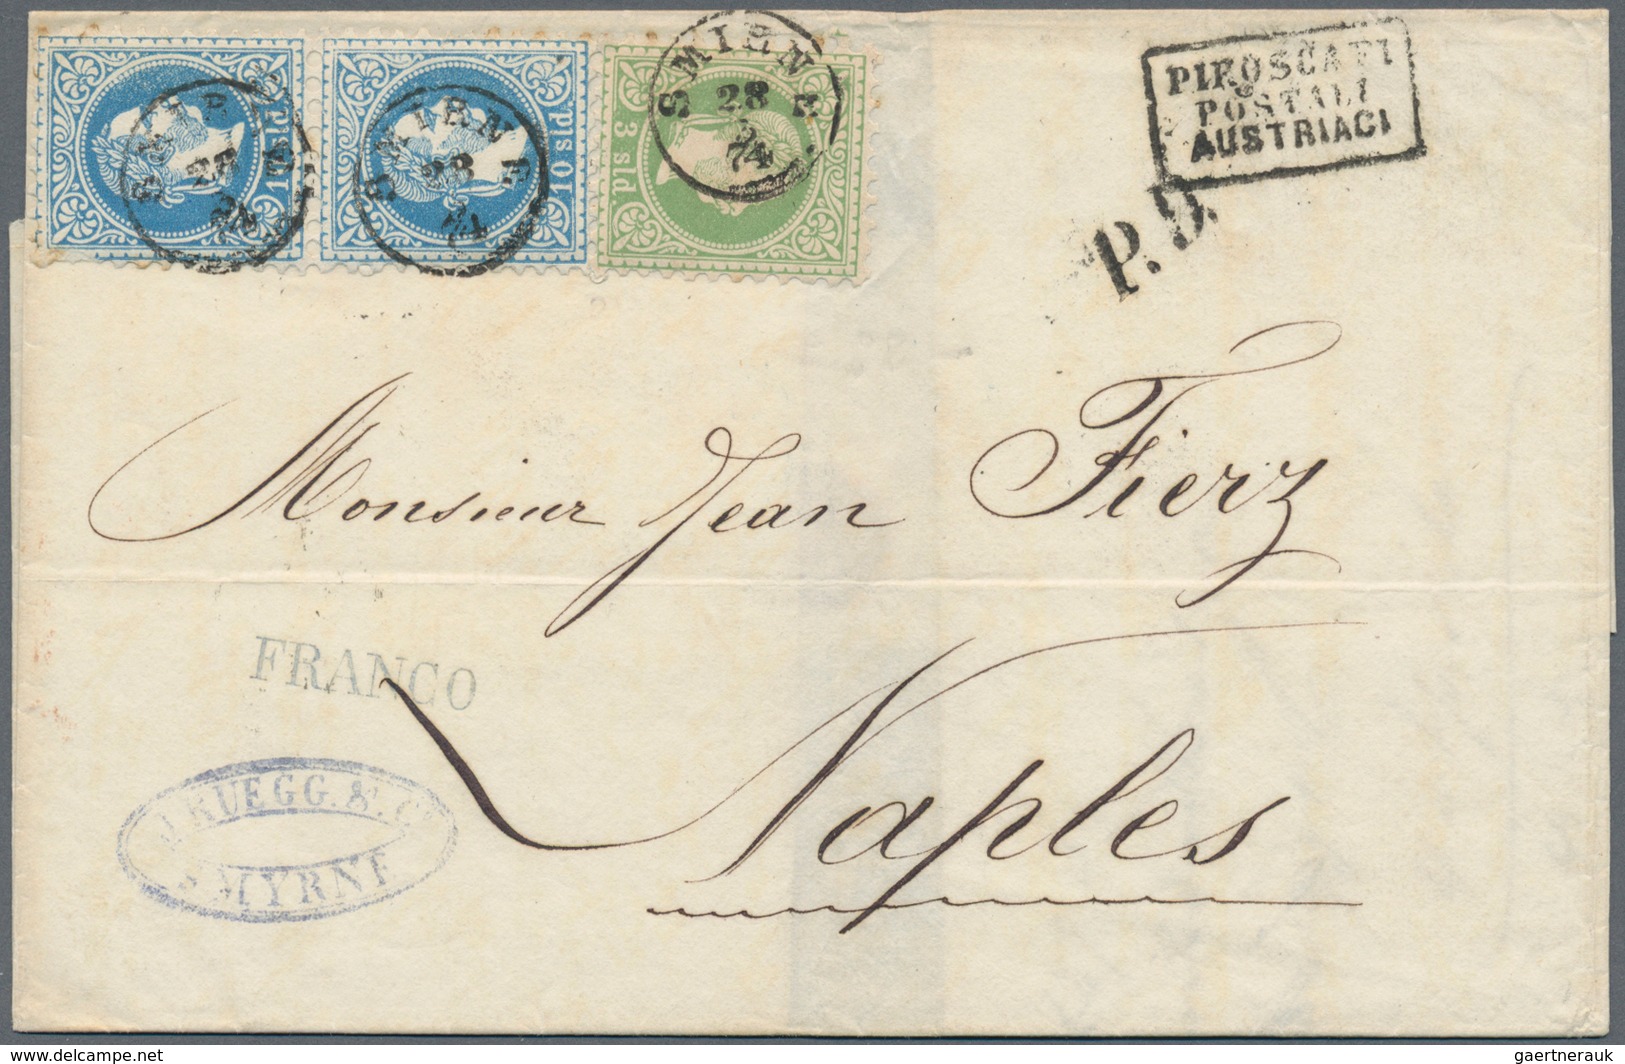 10 sld.
SMIRNE
28
10 sld.
SMIRNE
28
2
74
3 sld
SMIRNE
28
2
74
PIROSCAFI
POSTALI
AUSTRIACI
P.D.
Monsieur Jean Fierz
FRANCO
Naples
J. RUEGG. & Co
SMYRNE
www.delcampe.net
gaertnerauk